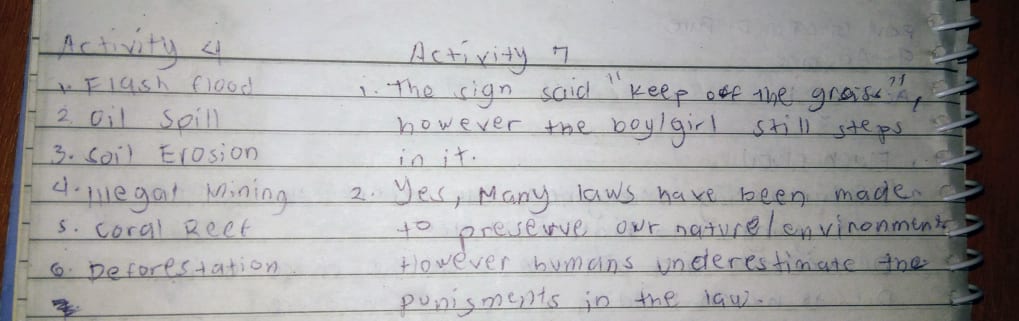 Activity 4
1. Flash flood
2. Oil Spill
3. Soil Erosion
4. Illegal Mining
5. Coral Reef
6. Deforestation
Activity 7
1. The sign said "keep off the grass",
however the boy/girl still steps
in it.
2. Yes, Many laws have been made
to preserve our nature/environment
However humans underestimate the
punisments in the law.